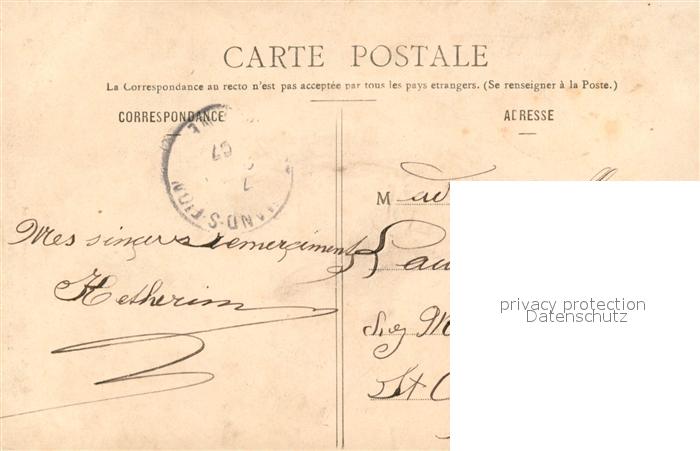 CARTE POSTALE
La Correspondance au recto n'est pas acceptée par tous les pays etrangers. (Se renseigner à la Poste.)
CORRESPONDANCE
ADRESSE
07
7
M
Mes sinçers remerçiments
chez M
St
privacy protection
Datenschutz